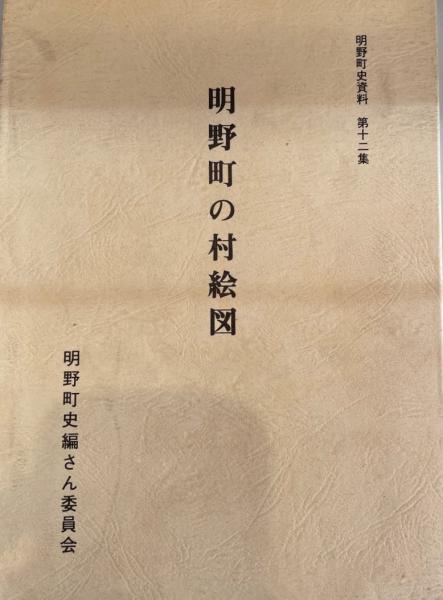 明野町史資料 第十二集
明野町の村絵図
明野町史編さん委員会